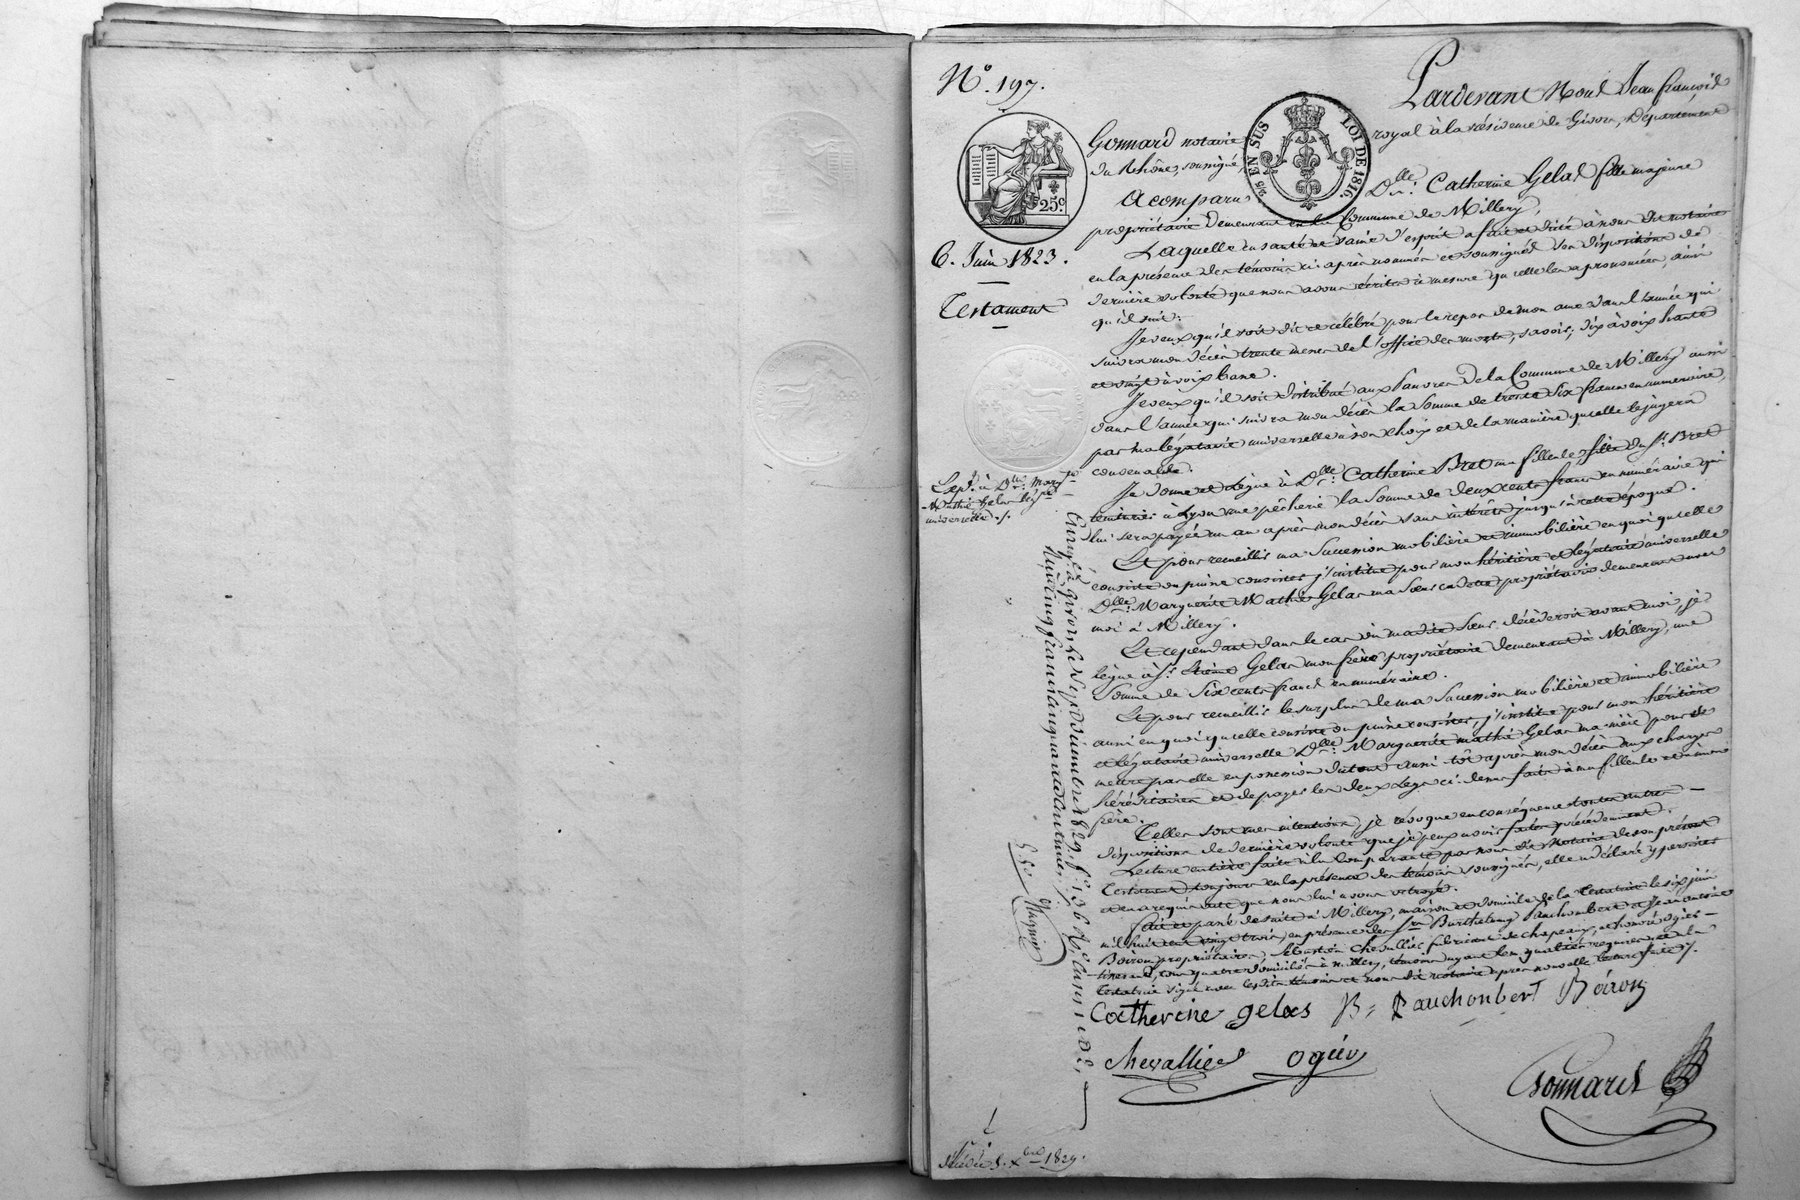 N.º 197.
Pardevant Nous Jean françois
Gonnard notaire royal à la résidence de Givors, Département
du Rhône, soussigné,
EN SUS
LOI DE 1816.
25.c
A comparu Dlle. Catherine Gelas fille majeure
propriétaire demeurant en la Commune de Millery,
6. Juin 1823.
Testament
Laquelle en santé et saine d'esprit a fait et dicté à nous dit notaire
en la présence des témoins ci après nommés et soussignés ses dispositions de
dernière volonté que nous avons écrites à mesure qu'elle les a prononcées, ainsi
qu'il suit:
Je veux qu'il soit dit et célébré pour le repos de mon ame dans l'année qui
suivra mon décès trente messes de l'office des morts, savoir; dix à voix haute
et vingt à voix basse.
Je veux qu'il soit distribué aux Pauvres de la Commune de Millery aussi
dans l'année qui suivra mon décès la somme de trente six francs en numéraire,
par ma légataire universelle à son choix et de la manière qu'elle le jugera
convenable.
Je donne et lègue à Dlle. Catherine Bret ma filleule fille du Sr. Bret
teinturier à Lyon rue pêcherie la somme de deux cents francs en numéraire qui
lui sera payée un an après mon décès sans intérêts jusqu'à cette époque.
Et pour recueillir ma Succession mobilière et immobilière en quoi qu'elle
consiste ou puisse consister, j'institue pour mon héritière et légataire universelle
Dlle. Marguerite Mathié Gelas ma sœur cadette propriétaire demeurant avec
moi à Millery.
Et cependant dans le cas où madite Sœur décéderoit avant moi, je
lègue à Sr. Etiene Gelas mon frère propriétaire demeurant à Millery, une
Somme de Six cents francs en numéraire.
Et pour recueillir le surplus de ma Succession mobilière et immobilière
aussi en quoi qu'elle consiste ou puisse consister, j'institue pour mon héritière
et légataire universelle Dlle. Marguerite mathié Gelas ma nièce pour se
mettre par elle en possession du tout aussi tôt après mon décès aux charges
héréditaires et de payer les deux legs ci-dessus faits à ma filleule et à mon
frère.
Telles sont mes intentions, je révoque en conséquence toutes autres
dispositions de dernière volonté que je peux avoir faites précédemment.
Lecture entière faite à la comparante par nous dit Notaire de son présent
Testament toujours en la présence des témoins soussignés, elle a déclaré y persister
et en a requis acte que nous lui avons octroyé.
Fait et passé de suite à Millery, maison et domicile de la Testatrice le six juin
mil huit cent vingt trois, en présence des Srs. Barthelemy Pauchombert et Jean antoine
Boiron propriétaires, Sébastien Chevallier fabricant de chapeaux, et honoré ogier
tisserand, tous quatre domiciliés à millery, témoins ayant les qualités requises et la
testatrice signé avec lesdits témoins et nous dit notaire après nouvelle lecture faite ./.
Catherine gelas B. Pauchonbert Boiron
Chevallier ogier
Gonnard
Expt. à Dlle. Margte.
Mathié Gelas
universelle ./.
Enregé. à givors le Sept décembre 1829, fo. 136
cinq francs cinquante centimes
Xbre 1829.